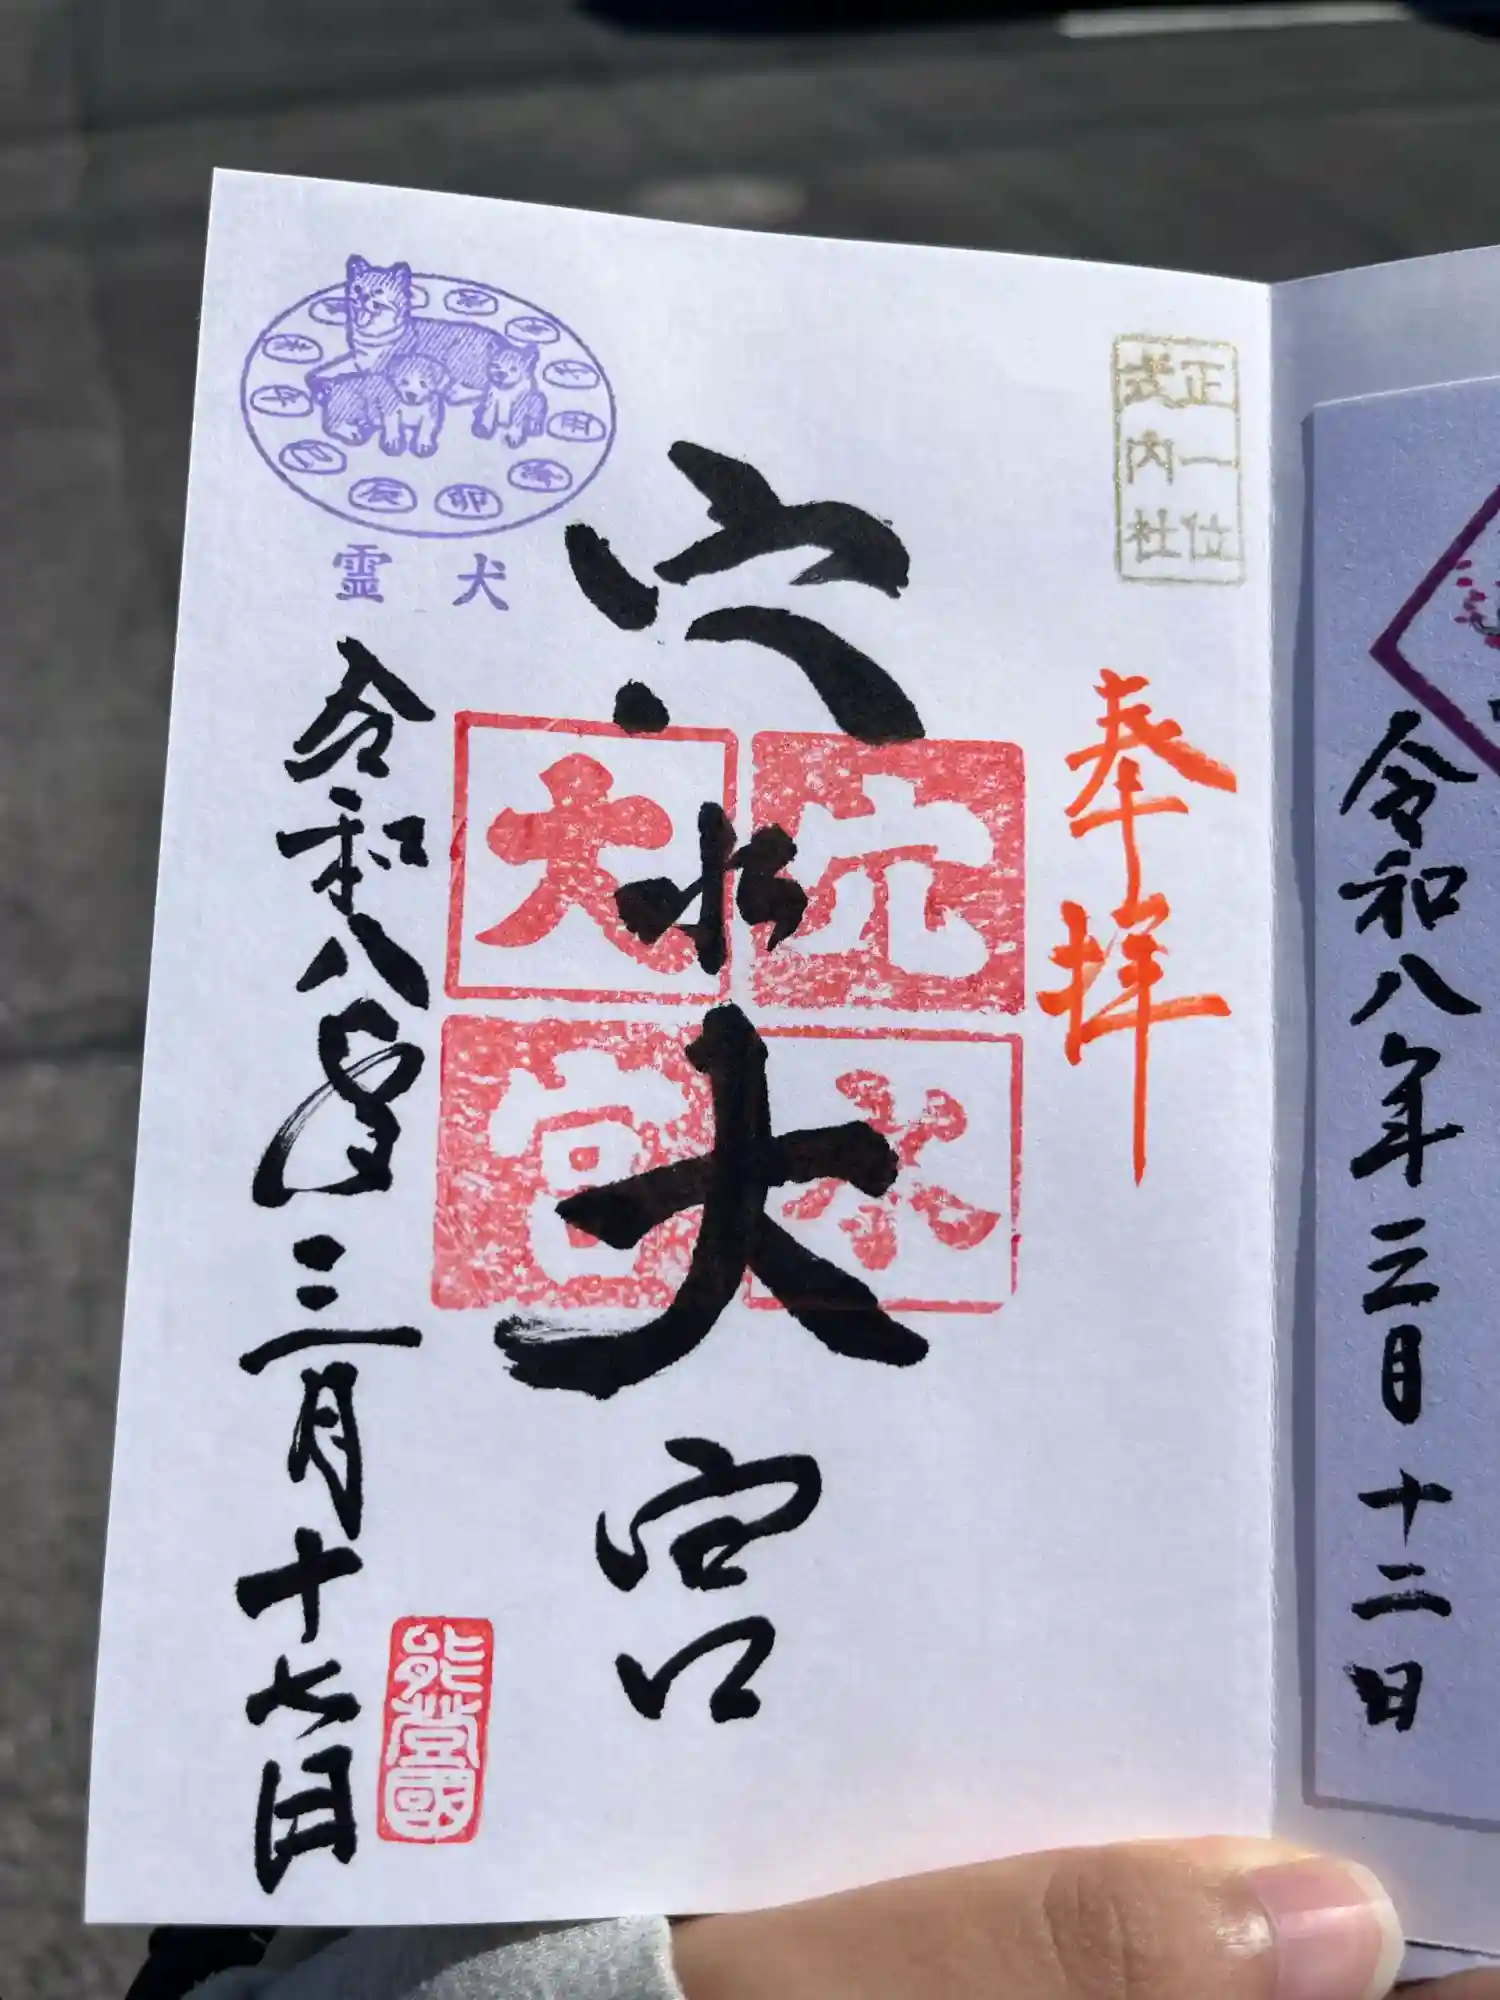 令和八年三月十二日
正一位
式内社
奉拝
穴水大宮
穴水
大宮
霊犬
卯
辰
巳
午
未
令和八年三月十七日
能登國